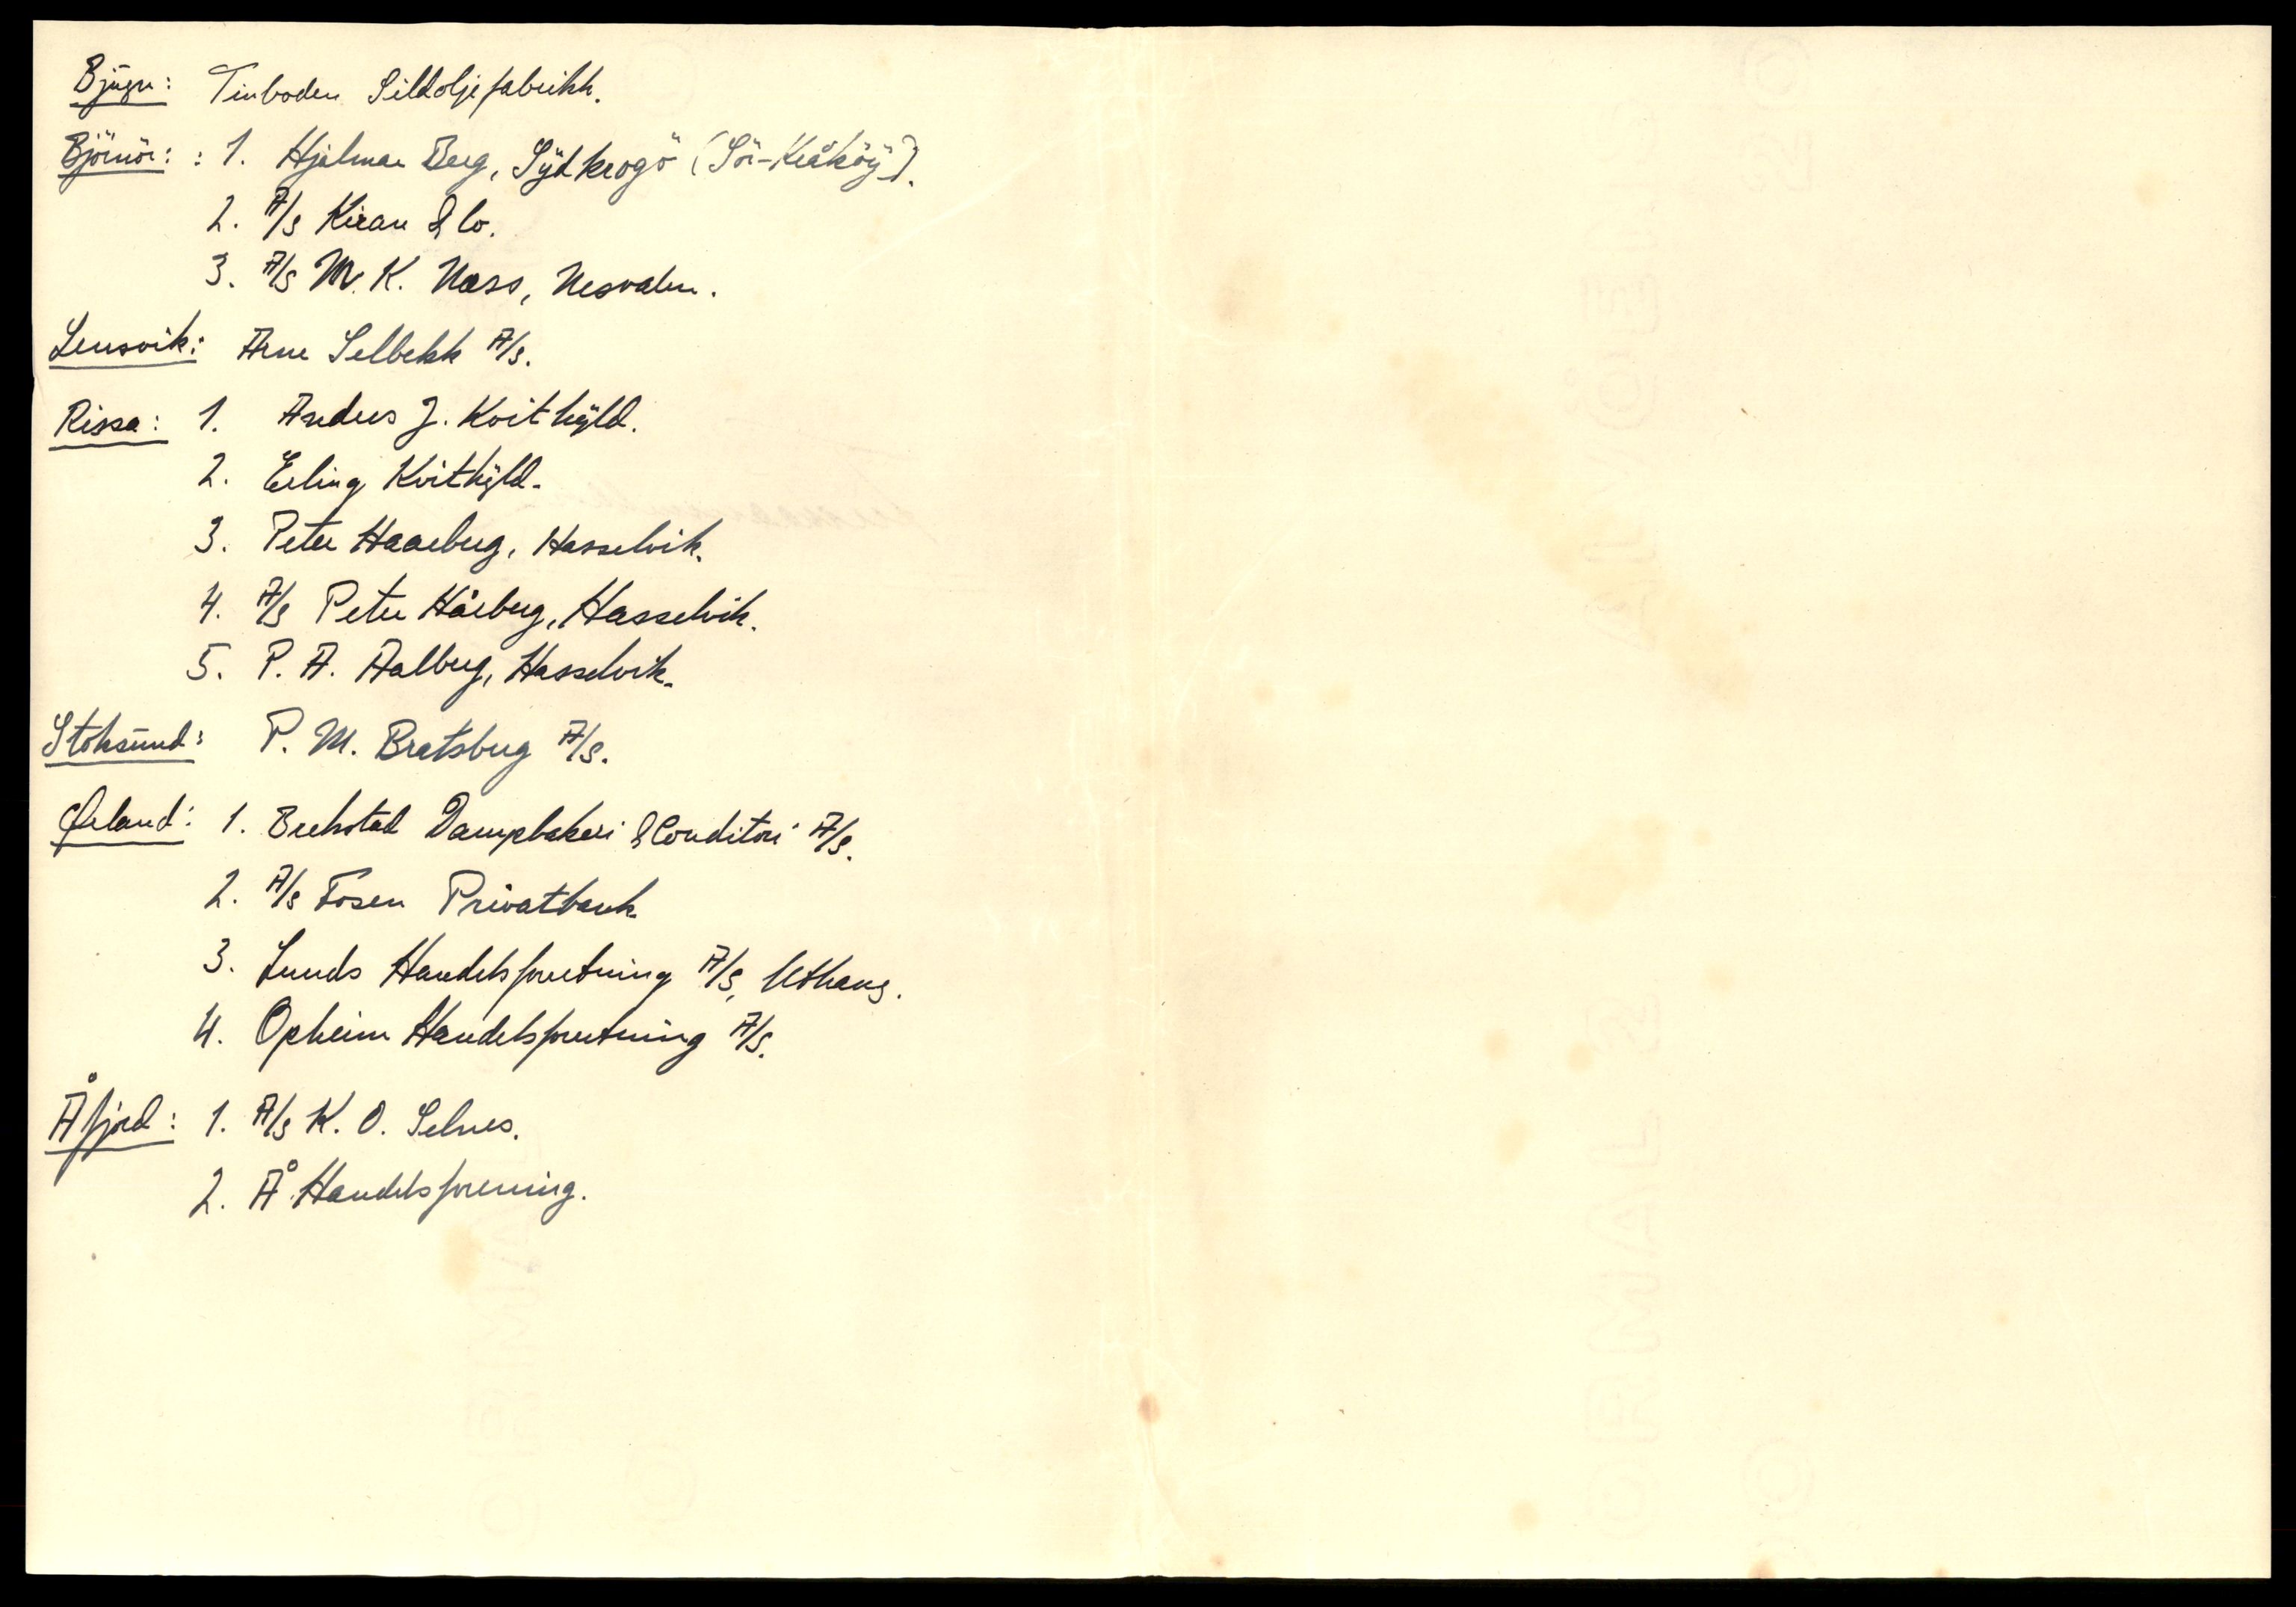 Bjugn: Tinboden Sildoljefabrikk.
Björnör: : 1. Hjalmar Berg, Sydkrogö (Sör-Kråköy).
2. A/s Kiran & Co.
3. A/s M. K. Næss, Nesvalen.
Lensvik: Arne Selbekk A/s.
Rissa: 1. Anders J. Kvithyld.
2. Erling Kvithyld.
3. Peter Haarberg, Hasselvik.
4. A/s Peter Hårberg, Hasselvik.
5. P. A. Aalberg, Hasselvik.
Stoksund: P. M. Bratsberg A/s.
Ørland: 1. Brekstad Dampbakeri & Conditori A/s.
2. A/s Fosen Privatbank
3. Lunds Handelsforretning A/s, Uthaug.
4. Opheim Handelsforretning A/s.
Åfjord: 1. A/s K. O. Selnes.
2. Å Handelsforening.